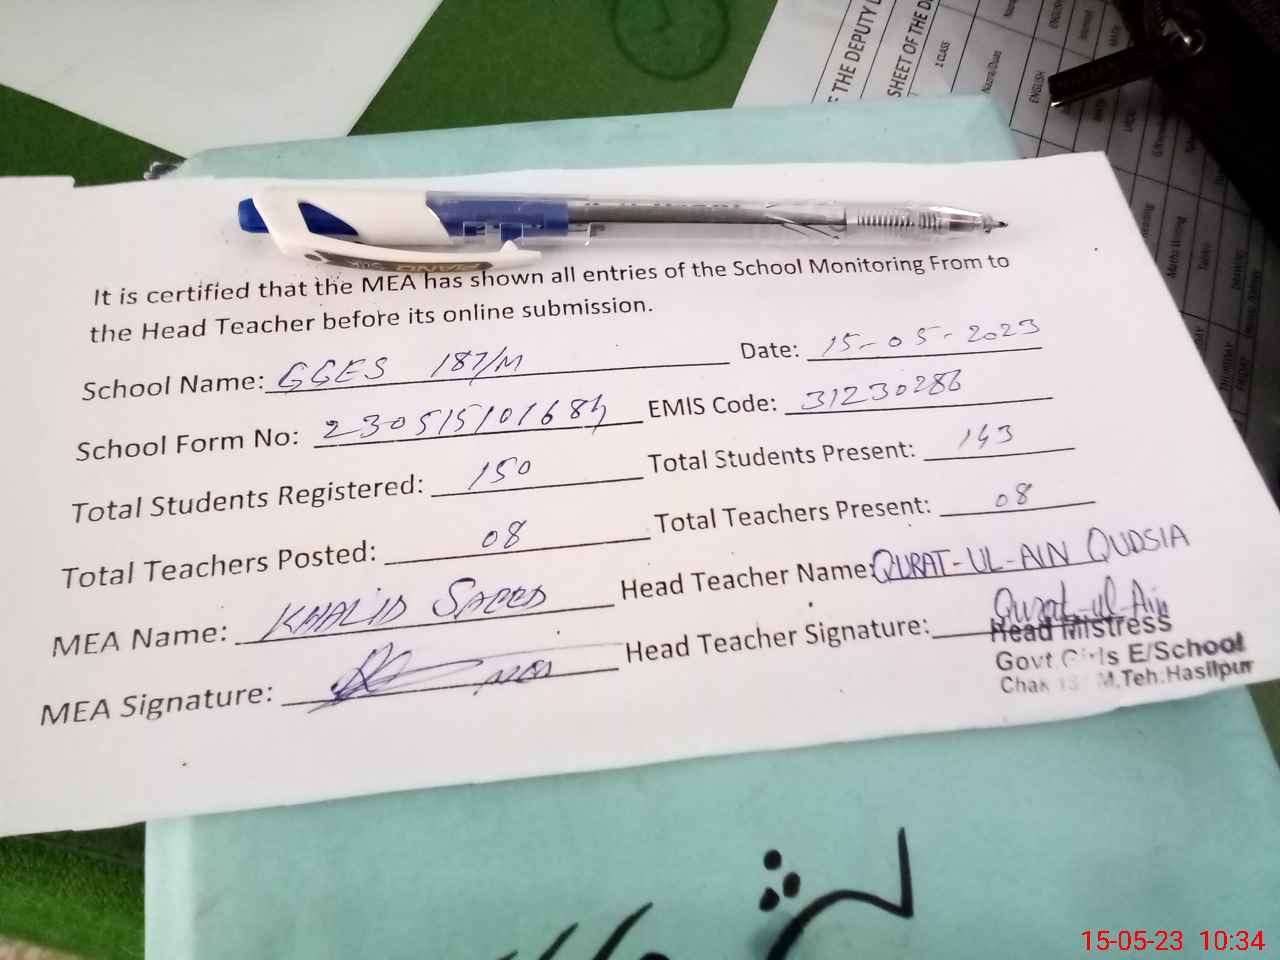 OF THE DEPUTY
SHEET OF THE D
1 CLASS
Nazra/Duas
ENGLISH
MATH
PIANO
It is certified that the MEA has shown all entries of the School Monitoring From to
the Head Teacher before its online submission.
School Name: GGES 187/M Date: 15-05-2023
School Form No: EMIS Code: 31230286
Total Students Registered: 150 Total Students Present: 143
Total Teachers Posted: 08 Total Teachers Present: 08
MEA Name: KHALID SAEED Head Teacher Name: QURAT-UL-AIN QUDSIA
MEA Signature: Head Teacher Signature: Qurat-ul-Ain
Head Mistress
Govt Girls E/School
Chak M,Teh:Hasilpur
15-05-23 10:34